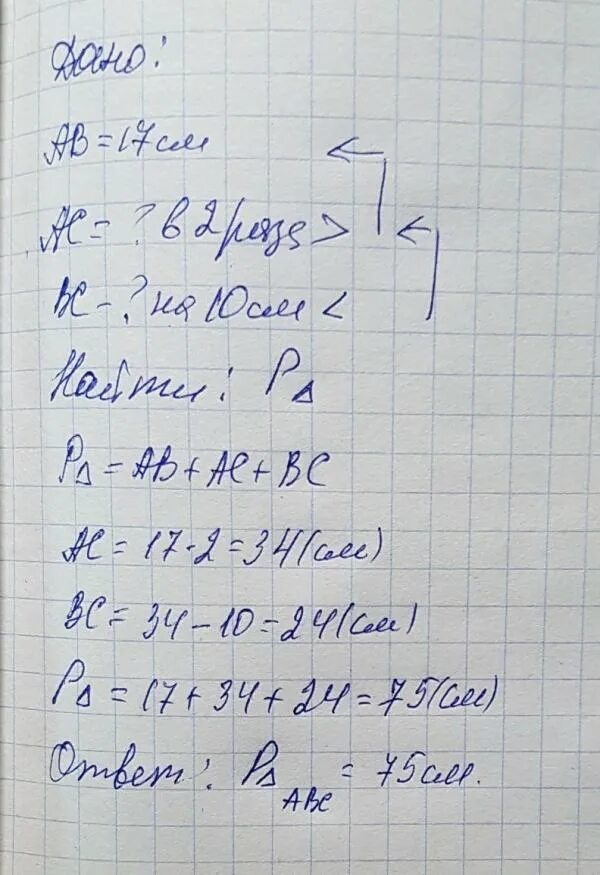 Дано:
AB = 17 см
AC = ? в 2 раза >
BC - ? на 10 см <
Найти: P△
P△ = AB + AC + BC
AC = 17 · 2 = 34 (см)
BC = 34 - 10 = 24 (см)
P△ = 17 + 34 + 24 = 75 (см)
Ответ: P△ABC = 75 см.